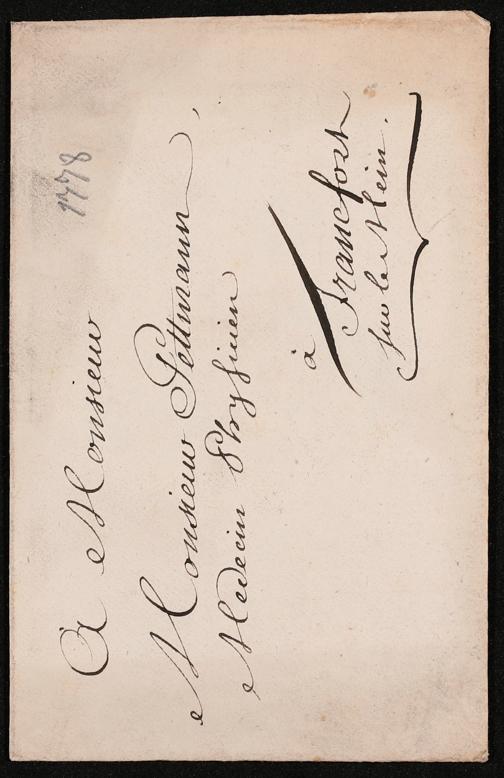 1778
À Monsieur
Monsieur Pettmann,
Medecin Physicien
à Francfort
sur le Mein.